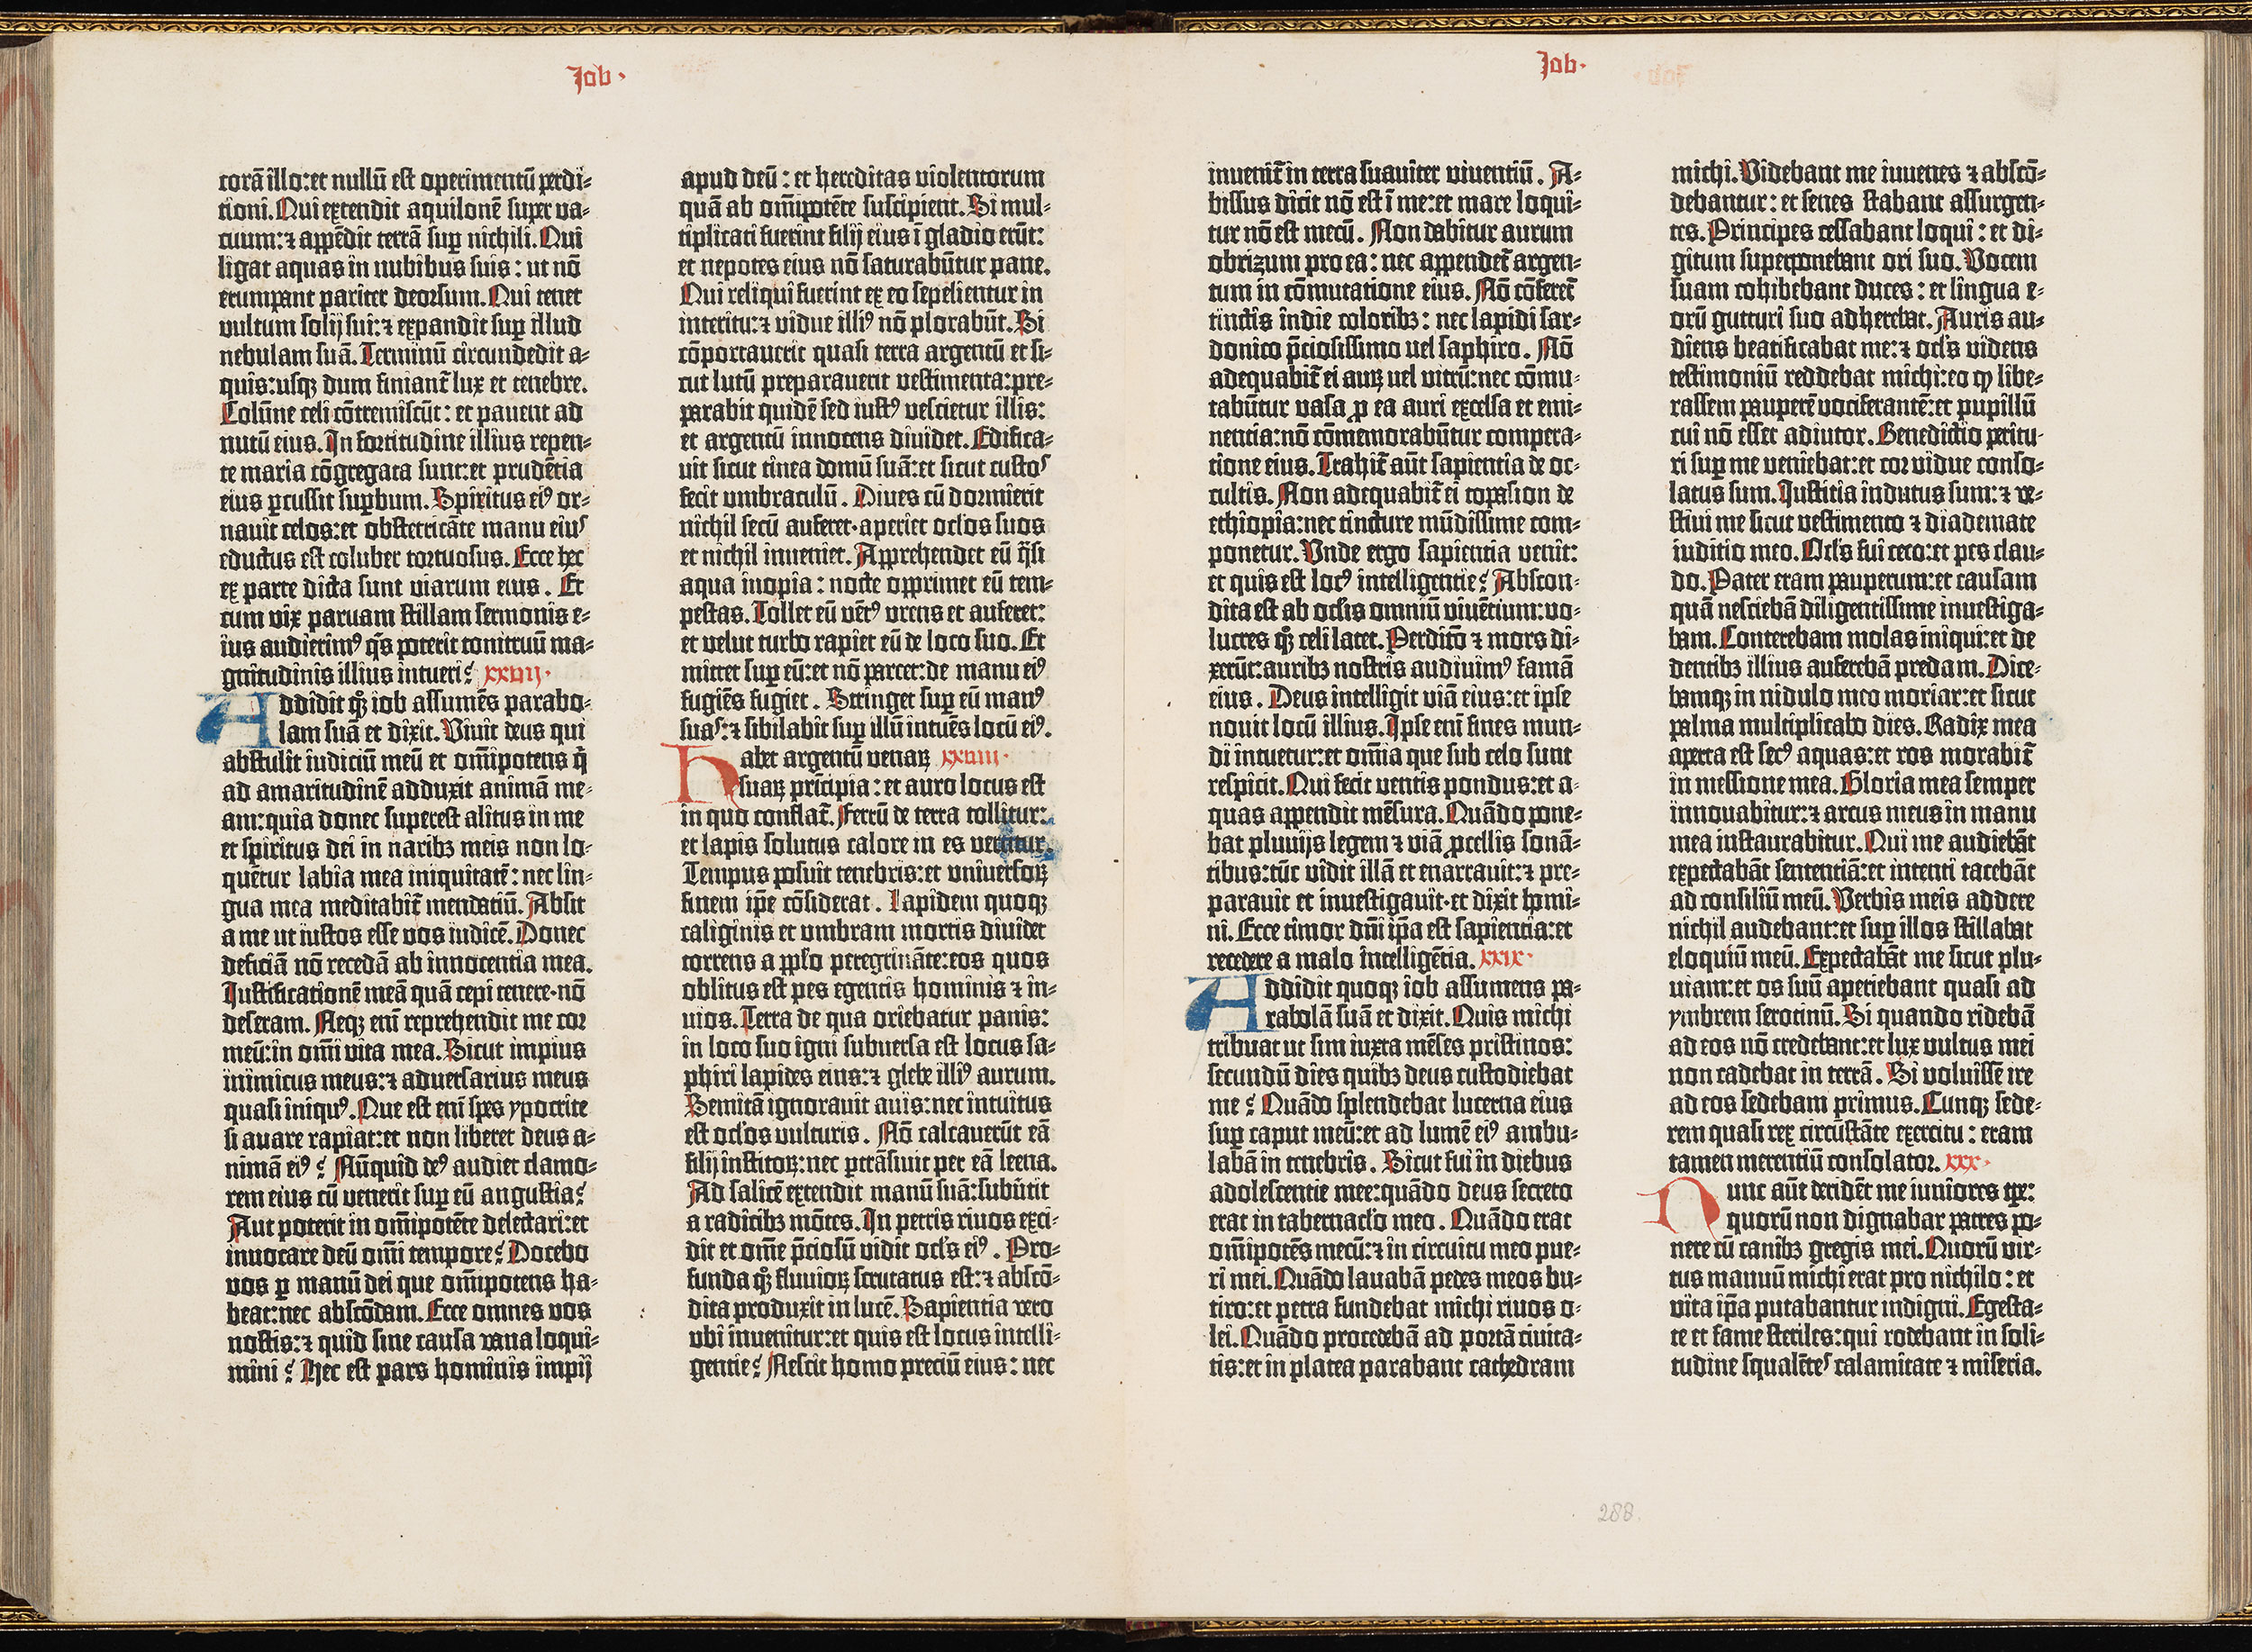 Job·
corã illo:et nullũ est operimentũ perdi-
tioni. Qui extendit aquilonẽ super va-
cuum: ⁊ appẽdit terrã suꝑ nichili. Qui
ligat aquas in nubibus suis: ut nõ
erumpant pariter deorsum. Qui tenet
vultum solij sui: ⁊ expandit suꝑ illud
nebulam suã. Terminũ circundedit a-
quis:usqꝫ dum finiant̃ lux et tenebre.
Colũne celi cõtremiscũt: et pauent ad
nutũ eius. In fortitudine illius repen-
te maria cõgregata sunt:et prudẽtia
eius ꝑcussit suꝑbum. Spiritus eiꝰ or-
nauit celos:et obstetricãte manu eius
eductus est coluber tortuosus. Ecce hec
ex parte dicta sunt viarum eius. Et
cum vix paruam stillam sermonis e-
ius audierimꝰ q̃s poterit tonitruũ ma-
gnitudinis illius intueri? xxvij·
Addidit qꝫ iob assumẽs parabo-
lam suã et dixit. Viuit deus qui
abstulit iudiciũ meũ et om̃ipotens q̃
ad amaritudinẽ adduxit animã me-
am:quia donec superest alitus in me
et spiritus dei in naribꝫ meis non lo-
quẽtur labia mea iniquitatẽ: nec lin-
gua mea meditabit̃ mendaciũ. Absit
a me ut iustos esse vos iudicẽ. Donec
deficiã nõ recedã ab innocentia mea.
Iustificationẽ meã quã cepi tenere·nõ
deseram. Neqꝫ eni reprehendit me cor
meũ:in om̃i vita mea. Sicut impius
inimicus meus: ⁊ aduersarius meus
quasi iniquꝰ. Que est eni spes ypocrite
si auare rapiat:et non liberet deus a-
nimã eiꝰ? Nũquid deꝰ audiet clamo-
rem eius cũ venerit suꝑ eũ angustia?
Aut poterit in om̃ipotẽte delectari:et
inuocare deũ om̃i tempore? Docebo
vos ꝑ manũ dei que om̃ipotens ha-
beat:nec abscõdam. Ecce omnes vos
nostis: ⁊ quid sine causa vana loqui-
mini? Hec est pars hominis impij
apud deũ: et hereditas violentorum
quã ab om̃ipotẽte suscipient. Si mul-
tiplicati fuerint filij eius ĩ gladio erũt:
et nepotes eius nõ saturabũtur pane.
Qui reliqui fuerint ex eo sepelientur in
interitu: ⁊ vidue illiꝰ nõ plorabũt. Si
cõportauerit quasi terra argentũ et si-
cut lutũ preparauerit vestimenta:pre-
parabit quidẽ sed iustꝰ vescietur illis:
et argentũ innocens diuidet. Edifica-
uit sicut tinea domũ suã:et sicut custos
fecit umbraculũ. Diues cũ dormierit
nichil secũ auferet·aperiet oclos suos
et nichil inueniet. Apprehendet eũ q̃si
aqua inopia: nocte opprimet eũ tem-
pestas. Tollet eũ vẽtꝰ vrens et auferet:
et velut turbo rapiet eũ de loco suo. Et
mittet suꝑ eũ:et nõ parcet:de manu eiꝰ
fugiẽs fugiet. Stringet suꝑ eũ manꝰ
suas: ⁊ sibilabit suꝑ illũ intuẽs locũ eiꝰ.
Habet argentũ venaꝝ xxviij·
suaꝝ prĩcipia: et auro locus est
in quo conflat̃. Ferrũ de terra tollitur:
et lapis solutus calore in es vertitur.
Tempus posuit tenebris:et vniuersoꝝ
finem ip̃e cõsiderat. Lapidem quoqꝫ
caliginis et umbram mortis diuidet
torrens a pplo peregrinãte:eos quos
oblitus est pes egentis hominis ⁊ in-
uios. Terra de qua oriebatur panis:
in loco suo igni subuersa est locus sa-
phiri lapides eius: ⁊ glebe illiꝰ aurum.
Semitã ignorauit auis:nec intuitus
est oclos vulturis. Nõ calcauerũt eã
filij institoꝝ:nec ptrãsiuit per eã leena.
Ad silicẽ extendit manũ suã:subũtit
a radicibꝫ mõtes. In petris riuos exci-
dit et om̃e p̃ciosũ vidit ocls eiꝰ. Pro-
funda qꝫ fluuioꝝ scrutatus est: ⁊ abscõ-
dita produxit in lucẽ. Sapientia vero
ubi inuenitur:et quis est locus intelli-
gentie? Nescit homo preciũ eius: nec
Job·
inuenit̃ in terra suauiter viuentiũ. A-
bissus dicit nõ est ĩ me:et mare loqui-
tur nõ est mecũ. Non dabitur aurum
obrizum pro ea: nec appendet̃ argen-
tum in cõmutatione eius. Nõ cõferet̃
tinctis indie coloribꝫ: nec lapidi sar-
donico p̃ciosissimo uel saphiro. Nõ
adequabit̃ ei auꝝ uel vitrũ:nec cõmu-
tabũtur vasa ꝓ ea auri excelsa et emi-
nentia:nõ cõmemorabũtur compera-
tione eius. Trahit̃ aũt sapientia de oc-
cultis. Non adequabit̃ ei topasion de
ethiopia:nec tincture mũdissime com-
ponetur. Vnde ergo sapientia venit:
et quis est locꝰ intelligentie? Abscon-
dita est ab oclis omniũ viuẽtium:vo-
lucres qꝫ celi latet. Perditõ ⁊ mors di-
xerũt:auribꝫ nostris audiuimꝰ famã
eius. Deus intelligit viã eius:et ipse
nouit locũ illius. Ipse eni fines mun-
di intuetur:et om̃ia que sub celo sunt
respicit. Qui fecit ventis pondus:et a-
quas appendit mẽsura. Quãdo pone-
bat pluuijs legem ⁊ viã ꝓcellis sonã-
tibus:tũc vidit illã et enarrauit: ⁊ pre-
parauit et inuestigauit·et dixit homi-
ni. Ecce timor dñi ip̃a est sapientia:et
recedere a malo intelligẽtia. xxix·
Addidit quoqꝫ iob assumens pa-
rabolã suã et dixit. Quis michi
tribuat ut sim iuxta mẽses pristinos:
secundũ dies quibꝫ deus custodiebat
me? Quãdo splendebat lucerna eius
suꝑ caput meũ:et ad lumẽ eiꝰ ambu-
labã in tenebris. Sicut fui in diebus
adolescentie mee:quãdo deus secreto
erat in tabernaclo meo. Quãdo erat
om̃ipotẽs mecũ: ⁊ in circuitu meo pue-
ri mei. Quãdo lauabã pedes meos bu-
tiro:et petra fundebat michi riuos o-
lei. Quãdo procedebã ad portã ciuita-
tis:et in platea parabant cathedram
michi. Videbant me iuuenes ⁊ abscõ-
debantur: et senes stabant assurgen-
tes. Principes cessabant loqui: et di-
gitum superponebant ori suo. Vocem
suam cohibebant duces: et lingua e-
orũ gutturi suo adherebat. Auris au-
diens beatificabat me: ⁊ ocls videns
testimoniũ reddebat michi:eo ꝙ libe-
rassem pauperẽ vociferantẽ:et pupillũ
cui nõ esset adiutor. Benedictio peritu-
ri suꝑ me veniebat:et cor vidue conso-
latus sum. Iustitia indutus sum: ⁊ ve-
stiui me sicut vestimento ⁊ diademate
iuditio meo. Ocls fui ceco:et pes clau-
do. Pater eram pauperum:et causam
quã nesciebã diligentissime inuestiga-
bam. Conterebam molas iniqui:et de
dentibꝫ illius auferebã predam. Dice-
bamqꝫ in nidulo meo moriar:et sicut
palma multiplicabo dies. Radix mea
aperta est secꝰ aquas:et ros morabit̃
in messione mea. Gloria mea semper
innouabitur: ⁊ arcus meus in manu
mea instaurabitur. Qui me audiebãt
expectabãt sententiã:et intenti tacebãt
ad consiliũ meũ. Verbis meis addere
nichil audebant:et suꝑ illos stillabat
eloquiũ meũ. Expectabãt me sicut plu-
uiam:et os suũ aperiebant quasi ad
ymbrem serotinũ. Si quando ridebã
ad eos nõ credebant:et lux vultus mei
non cadebat in terrã. Si voluissẽ ire
ad eos sedebam primus. Cunqꝫ sede-
rem quasi rex circũstãte exercitu: eram
tamen merentiũ consolator. xxx·
Nunc aũt derident me iuniores tꝑe:
quorũ non dignabar patres po-
nere cũ canibꝫ gregis mei. Quorũ vir-
tus manuũ michi erat pro nichilo: et
vita ip̃a putabantur indigni. Egesta-
te et fame steriles:qui rodebant in soli-
tudine squalẽtes calamitate ⁊ miseria.
288